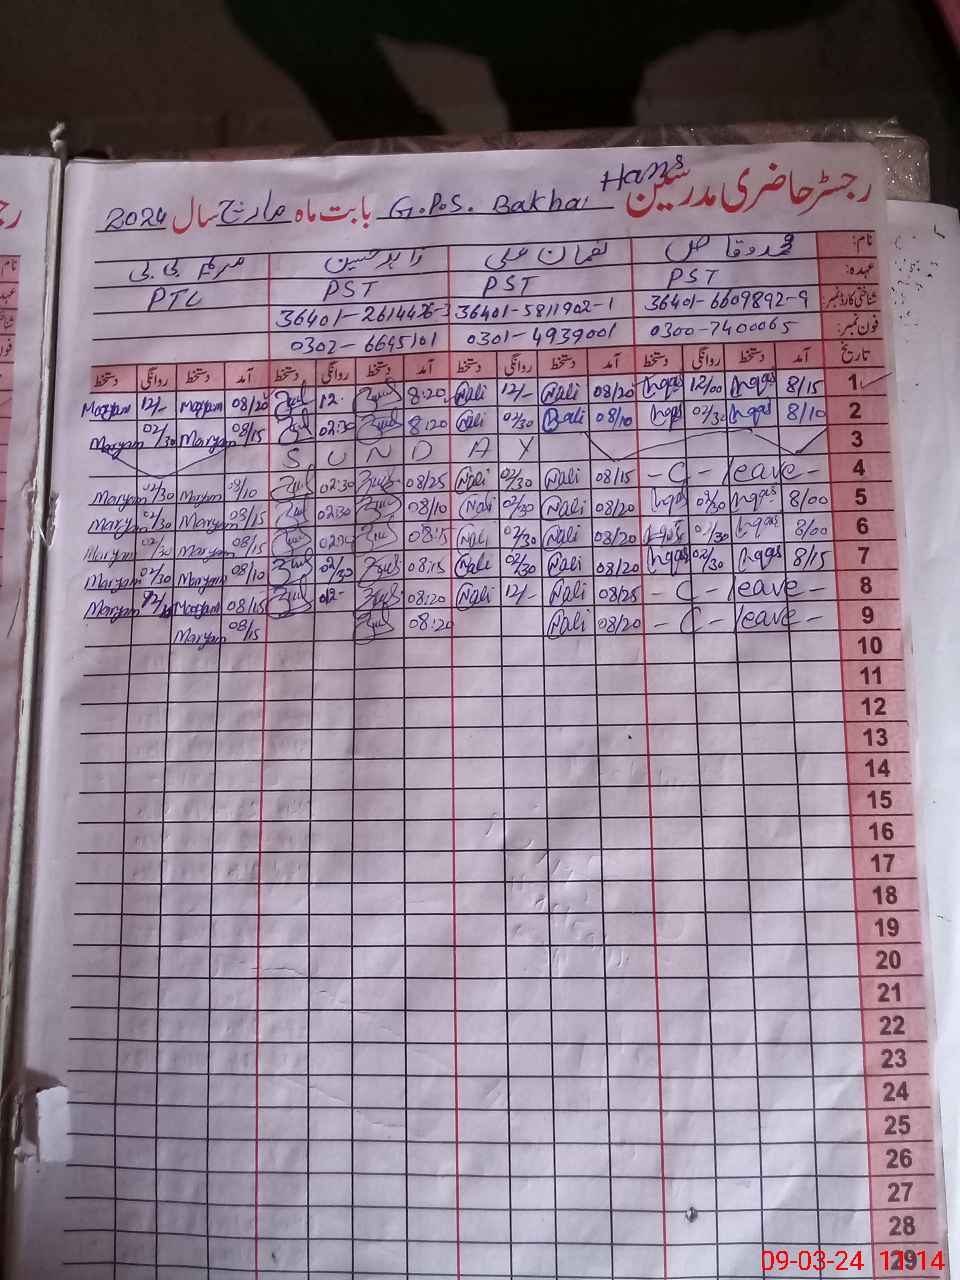 رجسٹر حاضری مدرسین Hans G.P.S. Bakha بابت ماہ مارچ سال 2024
نام: محمد وقاص نعمان علی زاہد حسین مریم بی بی
عہدہ: PST PST PST PTC
شناختی کارڈ نمبر: 36401-6609892-9 36401-5811902-1 36401-2614426-3
فون نمبر: 0300-7400065 0301-4939001 0302-6645101
تاریخ آمد دستخط روانگی دستخط آمد دستخط روانگی دستخط آمد دستخط روانگی دستخط آمد دستخط روانگی دستخط
1 8/15 Wqas 12/00 Wqas 08/20 Nali 12/- Nali 8:20 12- 08/20 Maryam 12/- Maryam
2 8/10 Wqas 02/30 Wqas 08/10 Nali 02/30 Nali 8:20 02:30 08/15 Maryam 02/30 Maryam
3 S U N D A Y
4 - C - leave - 08/15 Nali 02/30 Nali 08/25 02:30 08/10 Maryam 02/30 Maryam
5 8/00 Wqas 02/30 Wqas 08/20 Nali 02/30 Nali 08/10 02:30 08/15 Maryam 02/30 Maryam
6 8/00 Wqas 02/30 08/20 Nali 02/30 Nali 08:15 08/15 Maryam 02/30 Maryam
7 8/15 Wqas 02/30 Wqas 08/20 Nali 02/30 Nali 08:15 02/30 08/10 Maryam 02/30 Maryam
8 - C - leave - 08/25 Nali 12/- Nali 08:20 012- 08/15 Maryam Maryam
9 - C - leave - 08/20 Nali 08:20 08/15 Maryam
10
11
12
13
14
15
16
17
18
19
20
21
22
23
24
25
26
27
28
29
09-03-24